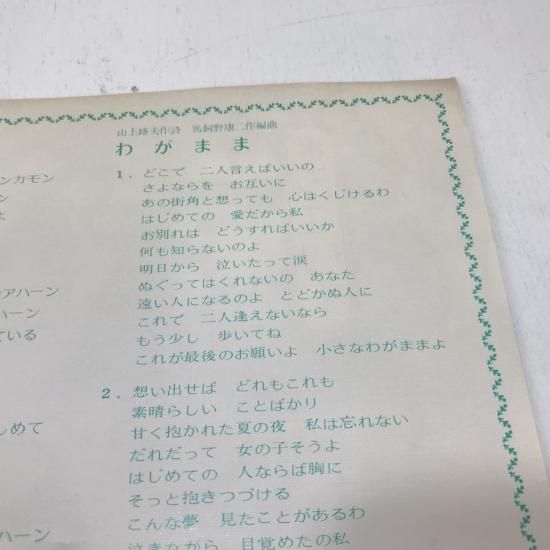 ンカモン
ン
アハーン
ハーン
ている
しめて
ハーン
山上路夫作詩 馬飼野康二作編曲
わがまま
1. どこで 二人言えばいいの
さよならを お互いに
あの街角と想っても 心はくじけるわ
はじめての 愛だから私
お別れは どうすればいいか
何も知らないのよ
明日から 泣いたって涙
ぬぐってはくれないの あなた
遠い人になるのよ とどかぬ人に
これで 二人逢えないなら
もう少し 歩いてね
これが最後のお願いよ 小さなわがままよ
2. 想い出せば どれもこれも
素晴らしい ことばかり
甘く抱かれた夏の夜 私は忘れない
だれだって 女の子そうよ
はじめての 人ならば胸に
そっと抱きつづける
こんな夢 見たことがあるわ
泣きながら 目覚めたの私